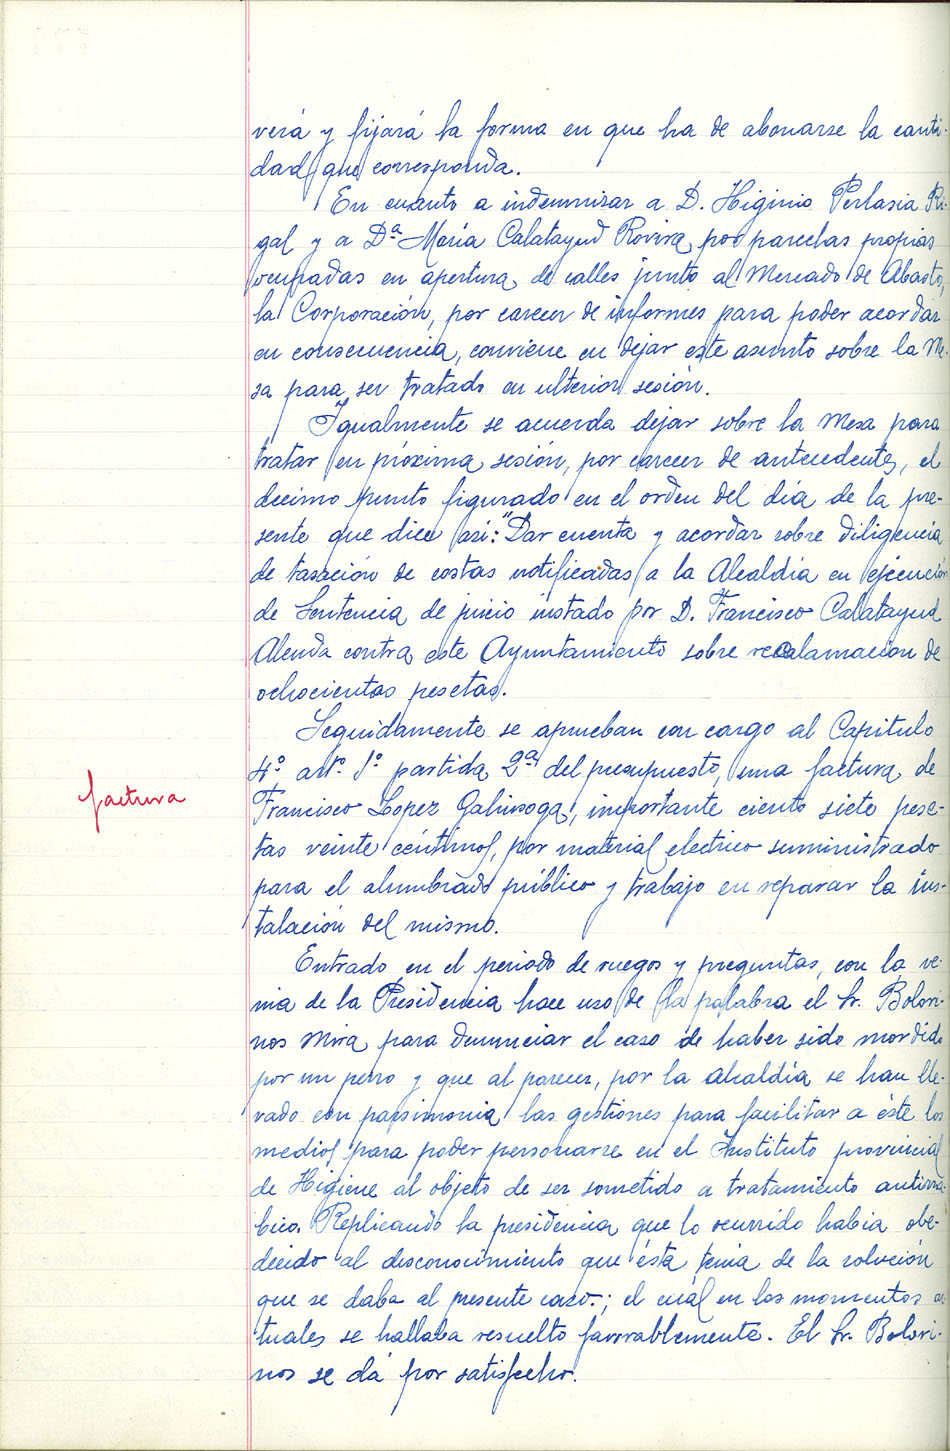 verá y fijará la forma en que ha de abonarse la canti-
dad que corresponda.
En cuanto a indemnizar a D. Higinio Perlasia Ri-
gal y a Dª María Calatayud Rovira por parcelas propias
ocupadas en apertura de calles junto al Mercado de Abasto,
la Corporación, por carecer de informes para poder acordar
en consecuencia, conviene en dejar este asunto sobre la Me-
sa para ser tratado en ulterior sesión.
Igualmente se acuerda dejar sobre la Mesa para
tratar en próxima sesión, por carecer de antecedentes, el
decimo punto figurado en el orden del día de la pre-
sente que dice así: "Dar cuenta y acordar sobre diligencia
de tasación de costas notificadas a la Alcaldía en ejecución
de Sentencia de juicio instado por D. Francisco Calatayud
Alenda contra este Ayuntamiento sobre reclamación de
ochocientas pesetas.
Seguidamente se aprueban con cargo al Capitulo
4º artº 1º partida 2ª del presupuesto, una factura de
factura
Francisco Lopez Galinsoga, importante ciento siete pese-
tas veinte céntimos, por material electrico suministrado
para el alumbrado público y trabajo en reparar la ins-
talación del mismo.
Entrado en el periodo de ruegos y preguntas, con la ve-
nia de la Presidencia hace uso de la palabra el Sr. Bolori-
nos Mira para denunciar el caso de haber sido mordido
por un perro y que al parecer, por la alcaldía se han lle-
vado con parsimonia las gestiones para facilitar a éste los
medios para poder personarse en el Instituto provincial
de Higiene al objeto de ser sometido a tratamiento antirrá-
bico. Replicando la presidencia que lo ocurrido habia obe-
decido al desconocimiento que ésta tenia de la solución
que se daba al presente caso.; el cuál en los momentos ac-
tuales se hallaba resuelto favorablemente. El Sr. Bolori-
nos se dá por satisfecho.